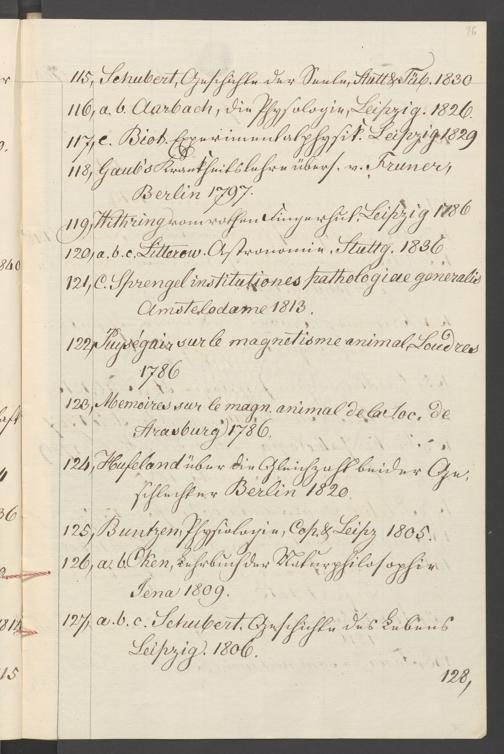 76
115, Schubert, Geschichte der Seele, Stutt & Tüb. 1830
116, a. b. Aurbach, die Physologie, Leipzig. 1826
117, c. Biot. Experimentalphysik. Leipzig 1829
118, Gaub's Krankheitslehre übers. v. Gruner,
Berlin 1797.
119, Withring vom rothen Fingerhut. Leipzig 1786
120, a. b. c. Litterow. Astronomie. Stuttg. 1836
121, C. Sprengel institutiones pathologiae generalis
Amstelodame 1813.
122, Puységair sur le magnetisme animal, Londres
1786
123, Memoires sur le magn. animal de la Soc. de
Strasburg 1786.
124, Hufeland über die Gleichzahl beider Ge-
schlechter Berlin 1820.
125, Buntzen, Physiologie, Cop. & Leipz 1805.
126, a. b. Oken, Lehrbuch der Naturphilosophie
Jena 1809.
127, a. b. c. Schubert. Geschichte des Lebens
Leipzig. 1806.
128,